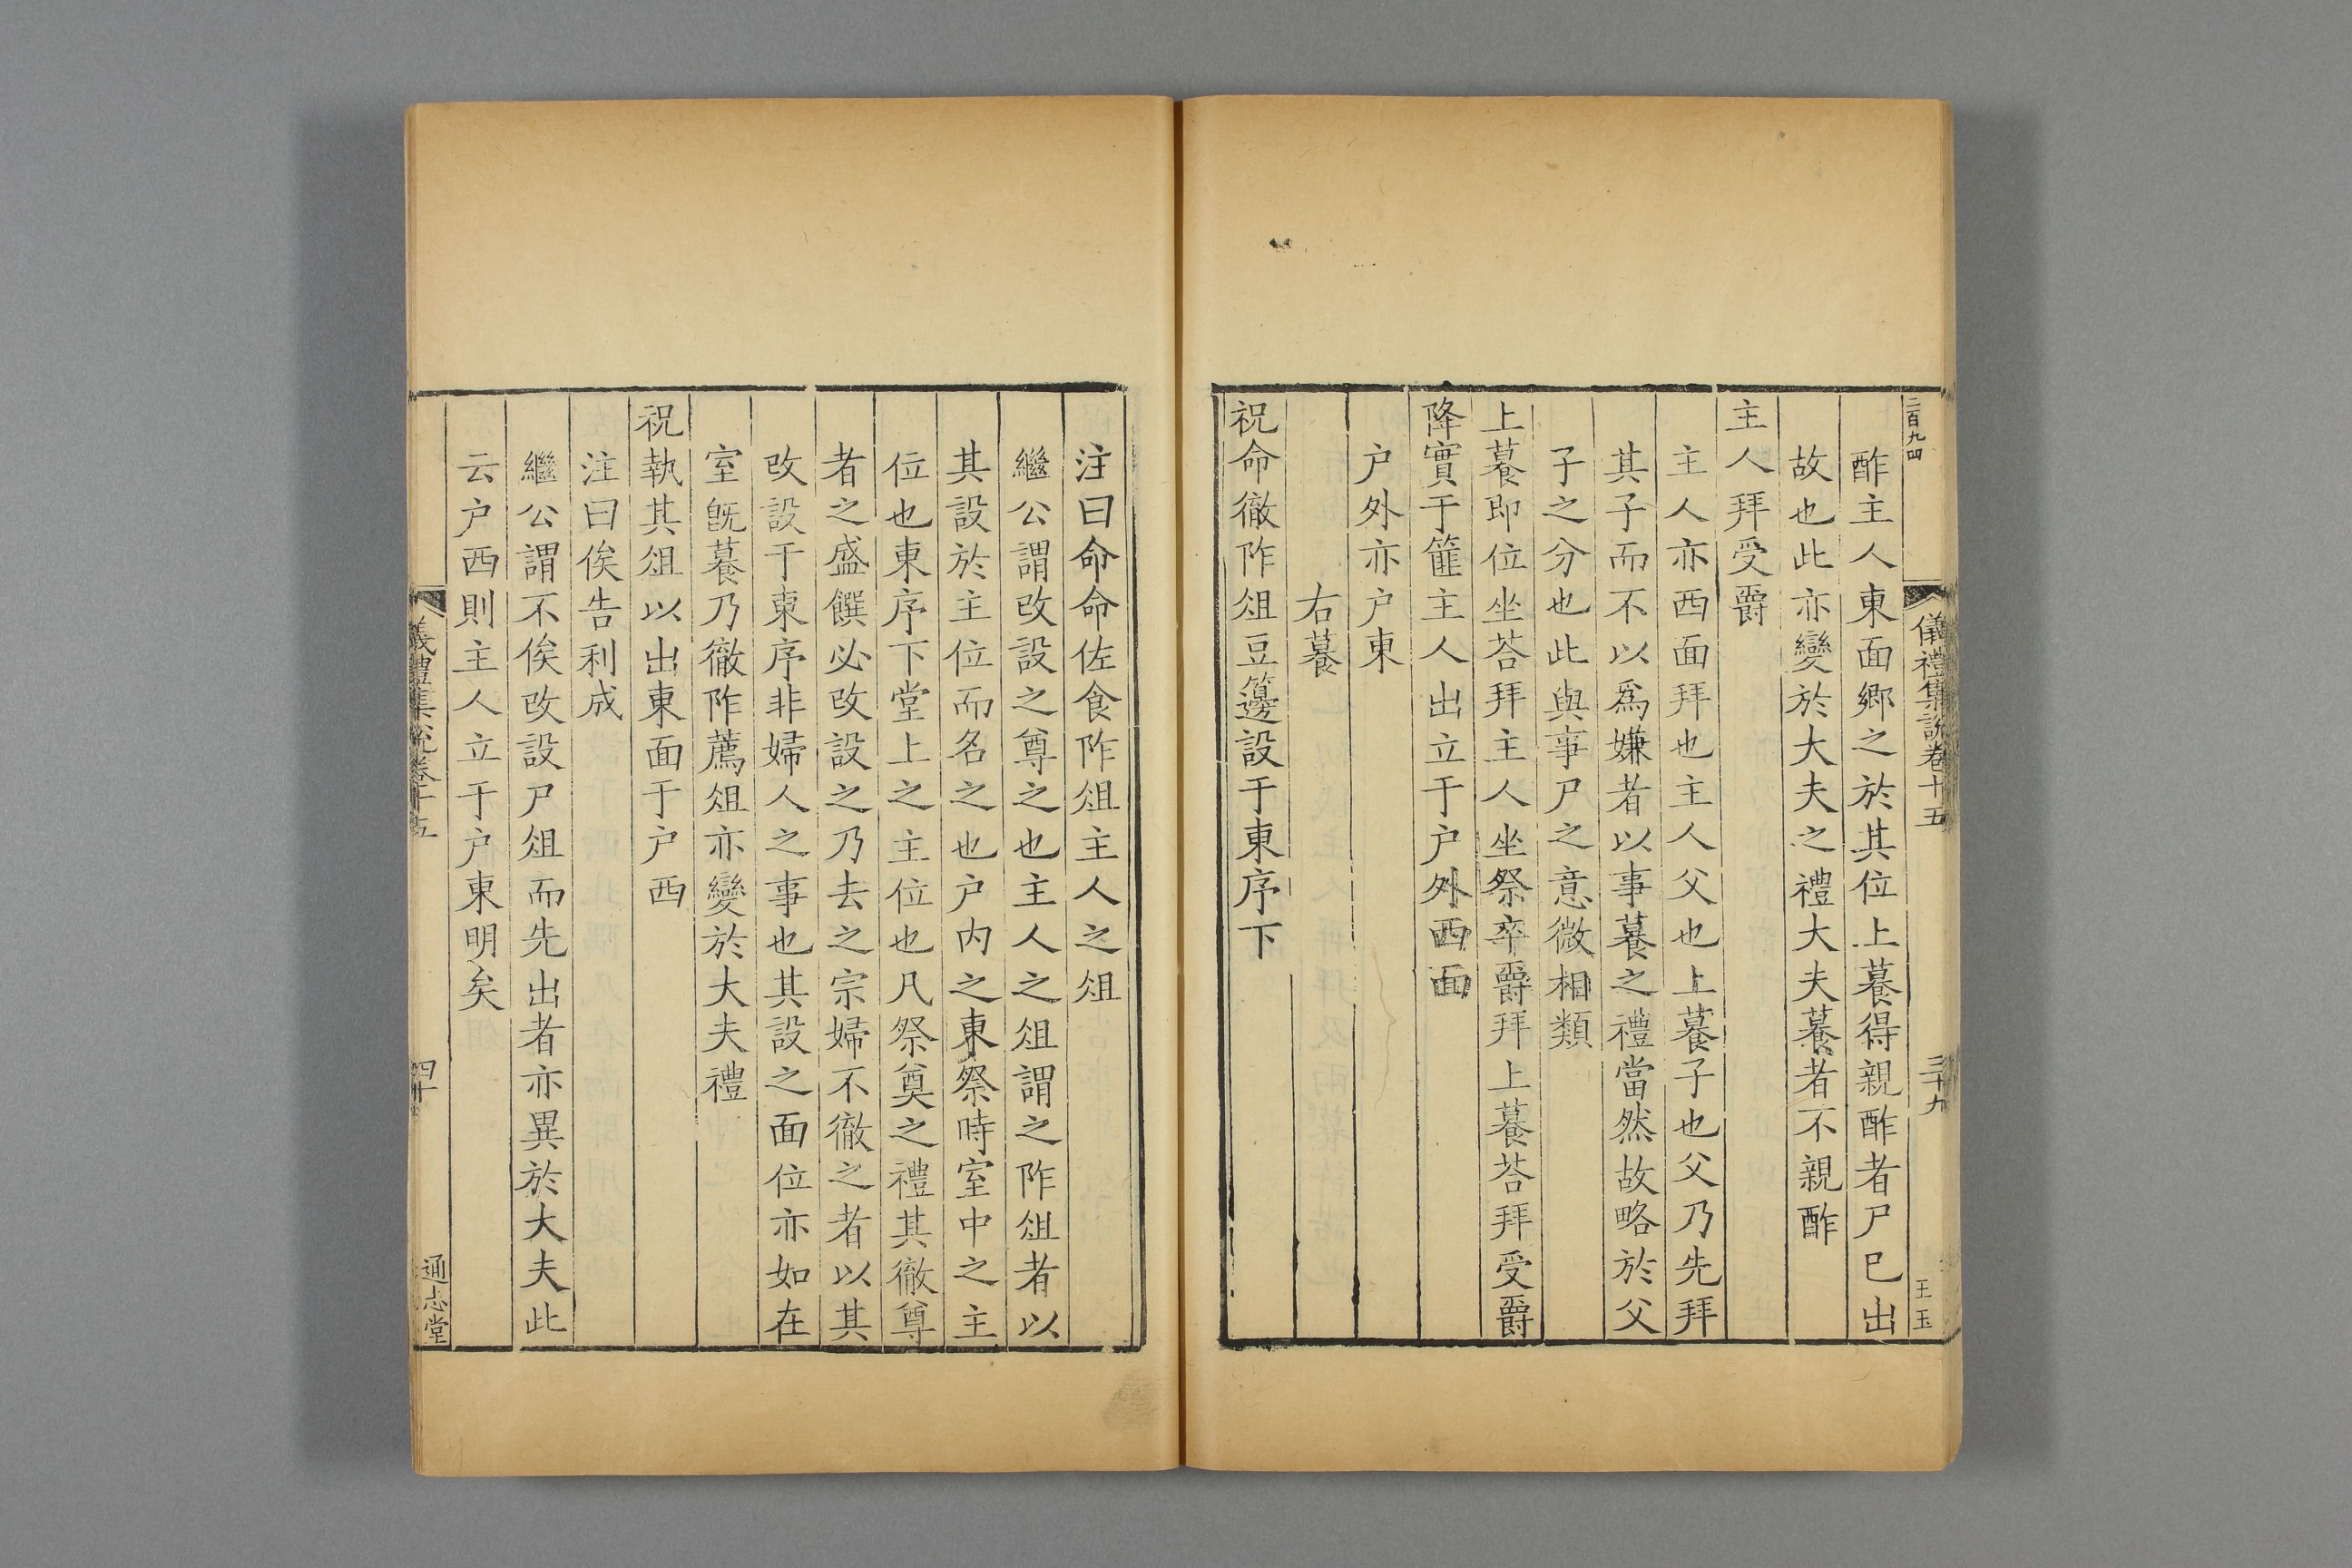 二百九四
儀禮集說卷十五
三十九
王玉
酢主人東面鄉之於其位上䭕得親酢者尸巳出
故也此亦變於大夫之禮大夫䭕者不親酢
主人拜受爵
主人亦西面拜也主人父也上䭕子也父乃先拜
其子而不以爲嫌者以事䭕之禮當然故略於父
子之分也此與事尸之意微相類
上䭕即位坐荅拜主人坐祭卒爵拜上䭕荅拜受爵
降實于篚主人出立于户外西面
户外亦户東
右䭕
祝命徹阼俎豆籩設于東序下
注曰命命佐食阼俎主人之俎
繼公謂改設之尊之也主人之俎謂之阼俎者以
其設於主位而名之也户内之東祭時室中之主
位也東序下堂上之主位也凡祭奠之禮其徹尊
者之盛饌必改設之乃去之宗婦不徹之者以其
改設于東序非婦人之事也其設之面位亦如在
室旣䭕乃徹阼薦俎亦變於大夫禮
祝執其俎以出東面于户西
注曰俟告利成
繼公謂不俟改設尸俎而先出者亦異於大夫此
云户西則主人立于户東明矣
儀禮集說卷十五
四十
通志堂